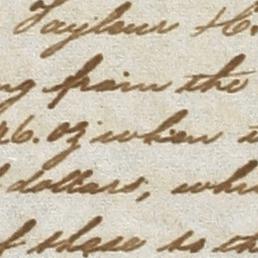 Taylour &c.
ng from the
46. oz when
dollars, whi
f these to th